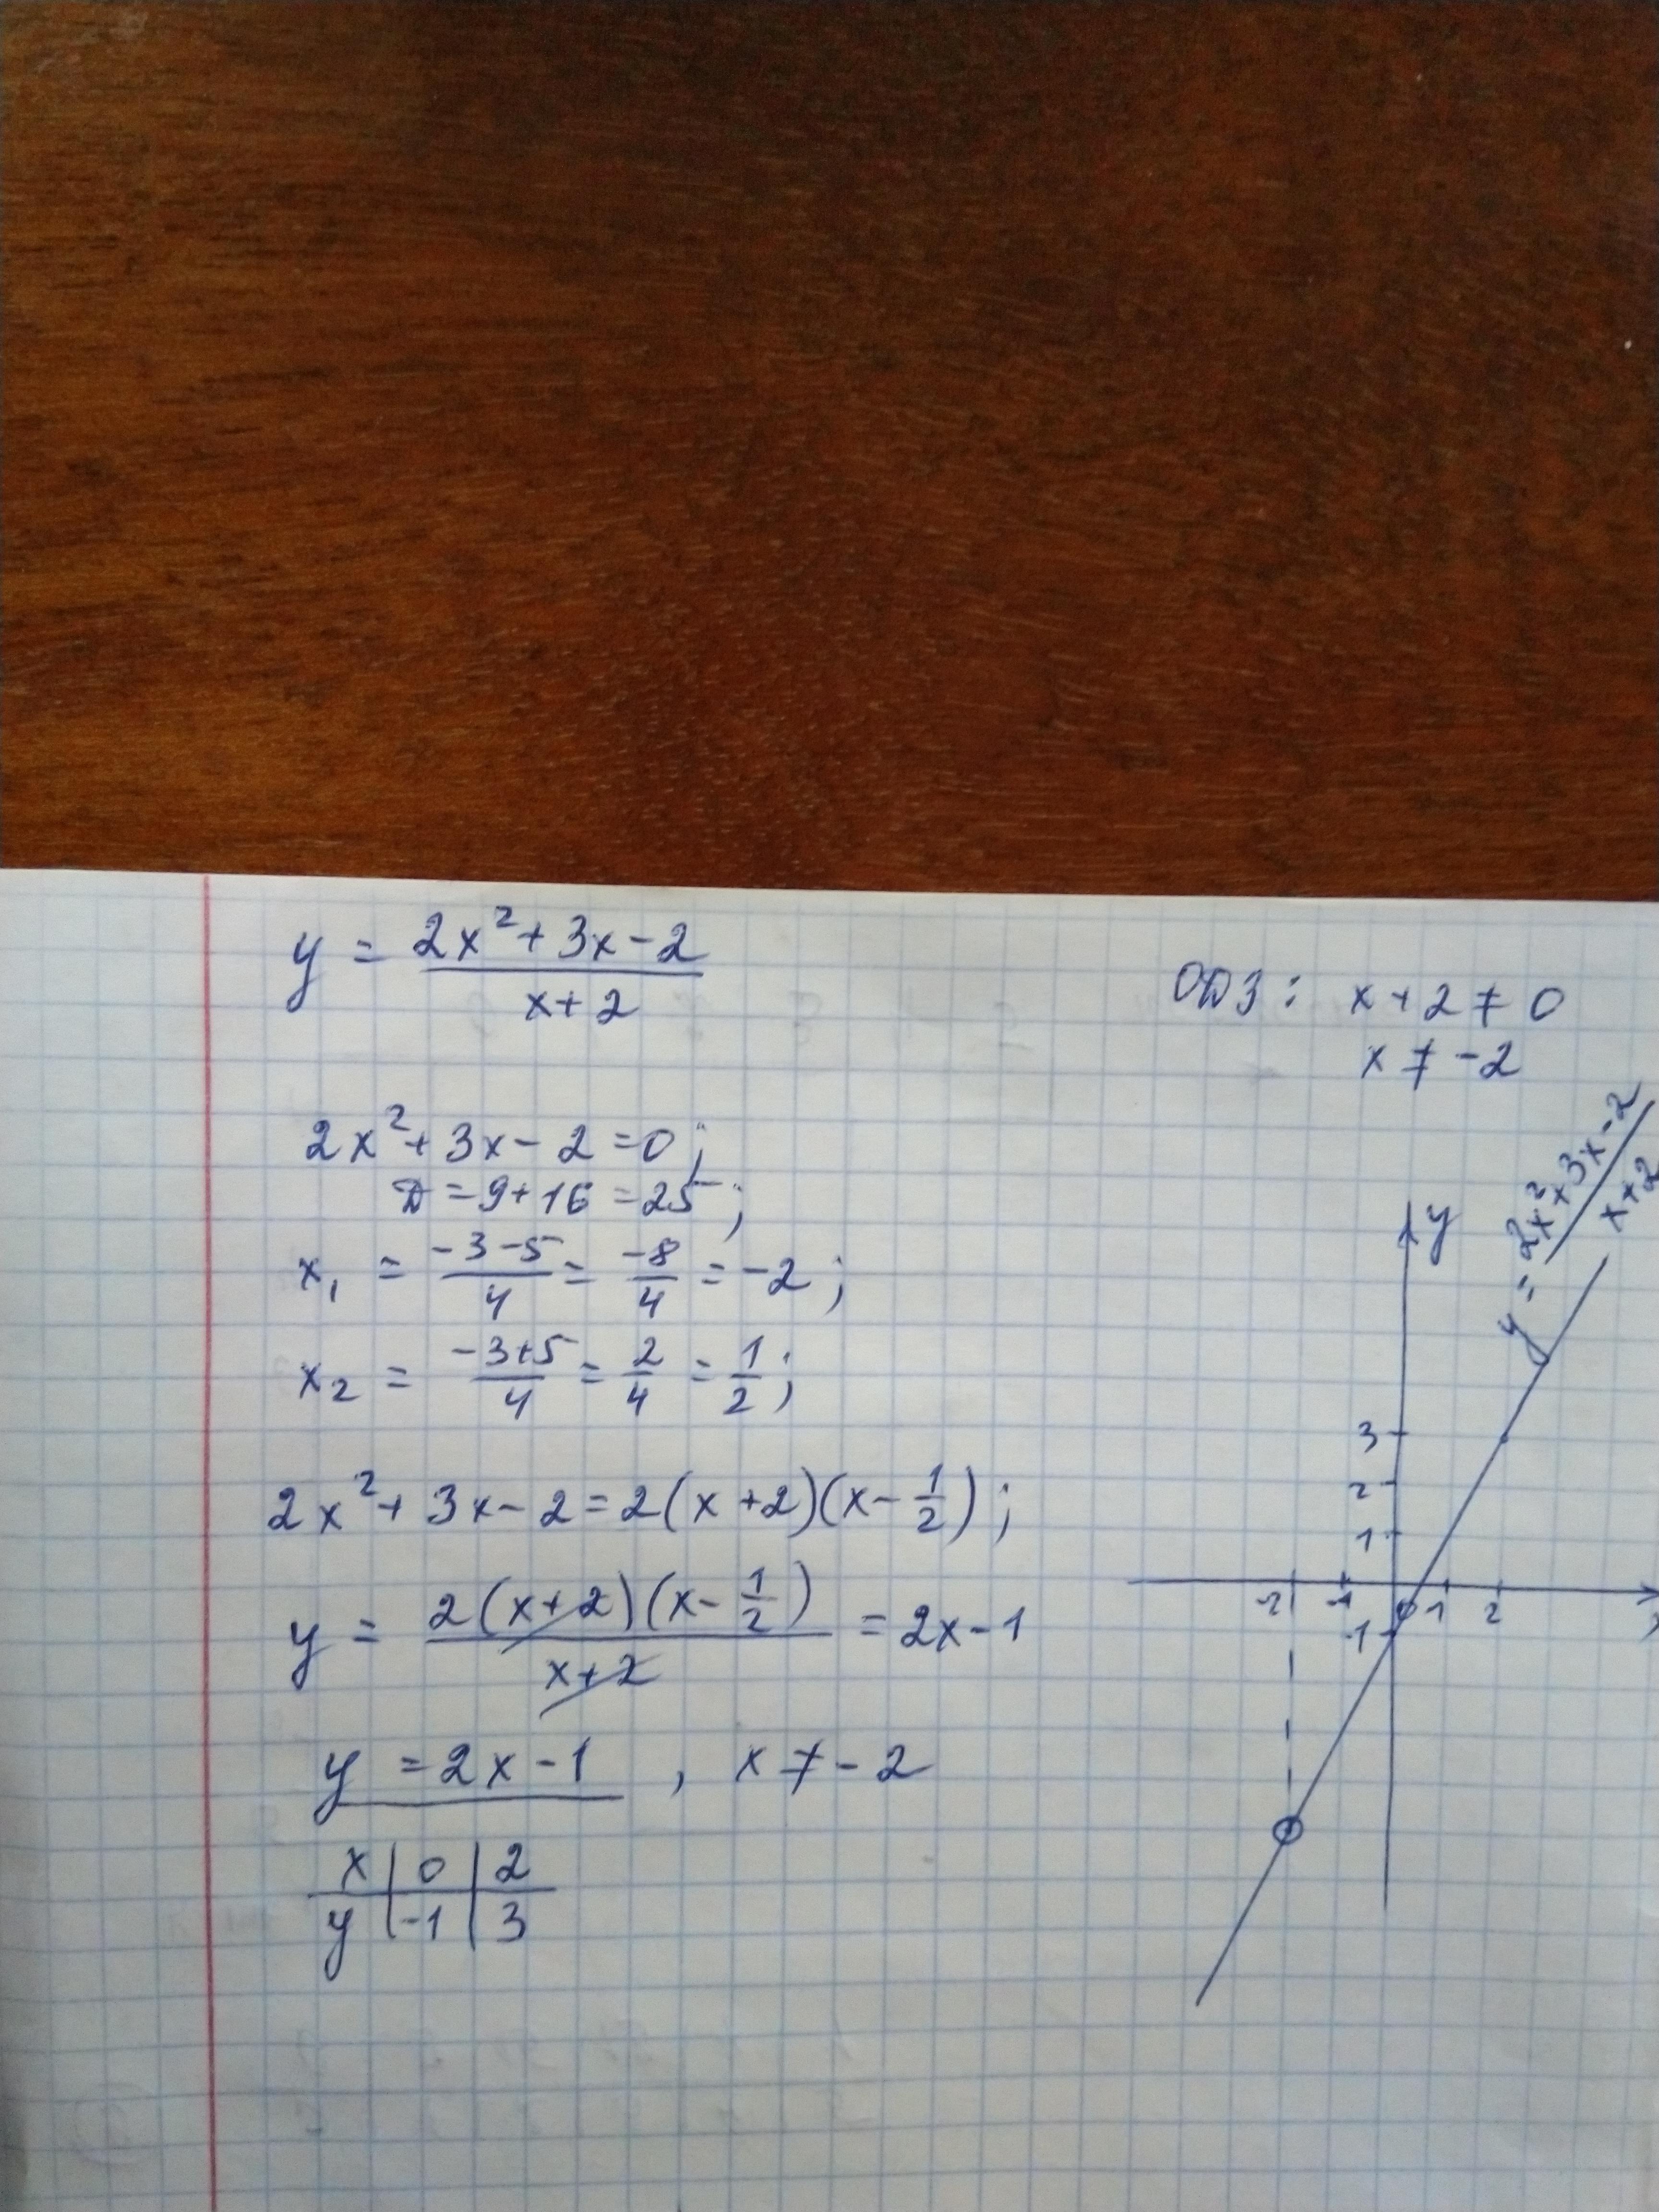 y = (2x² + 3x - 2)/(x + 2)
ОДЗ: x + 2 ≠ 0
x ≠ -2
2x² + 3x - 2 = 0;
D = 9 + 16 = 25;
x₁ = (-3 - 5)/4 = -8/4 = -2;
x₂ = (-3 + 5)/4 = 2/4 = 1/2;
2x² + 3x - 2 = 2(x + 2)(x - 1/2);
y = 2(x + 2)(x - 1/2)/(x + 2) = 2x - 1
y = 2x - 1, x ≠ -2
x | 0 | 2
y | -1 | 3
y = (2x² + 3x - 2)/(x + 2)
y
3
2
1
-2 -1 0 1 2
-1